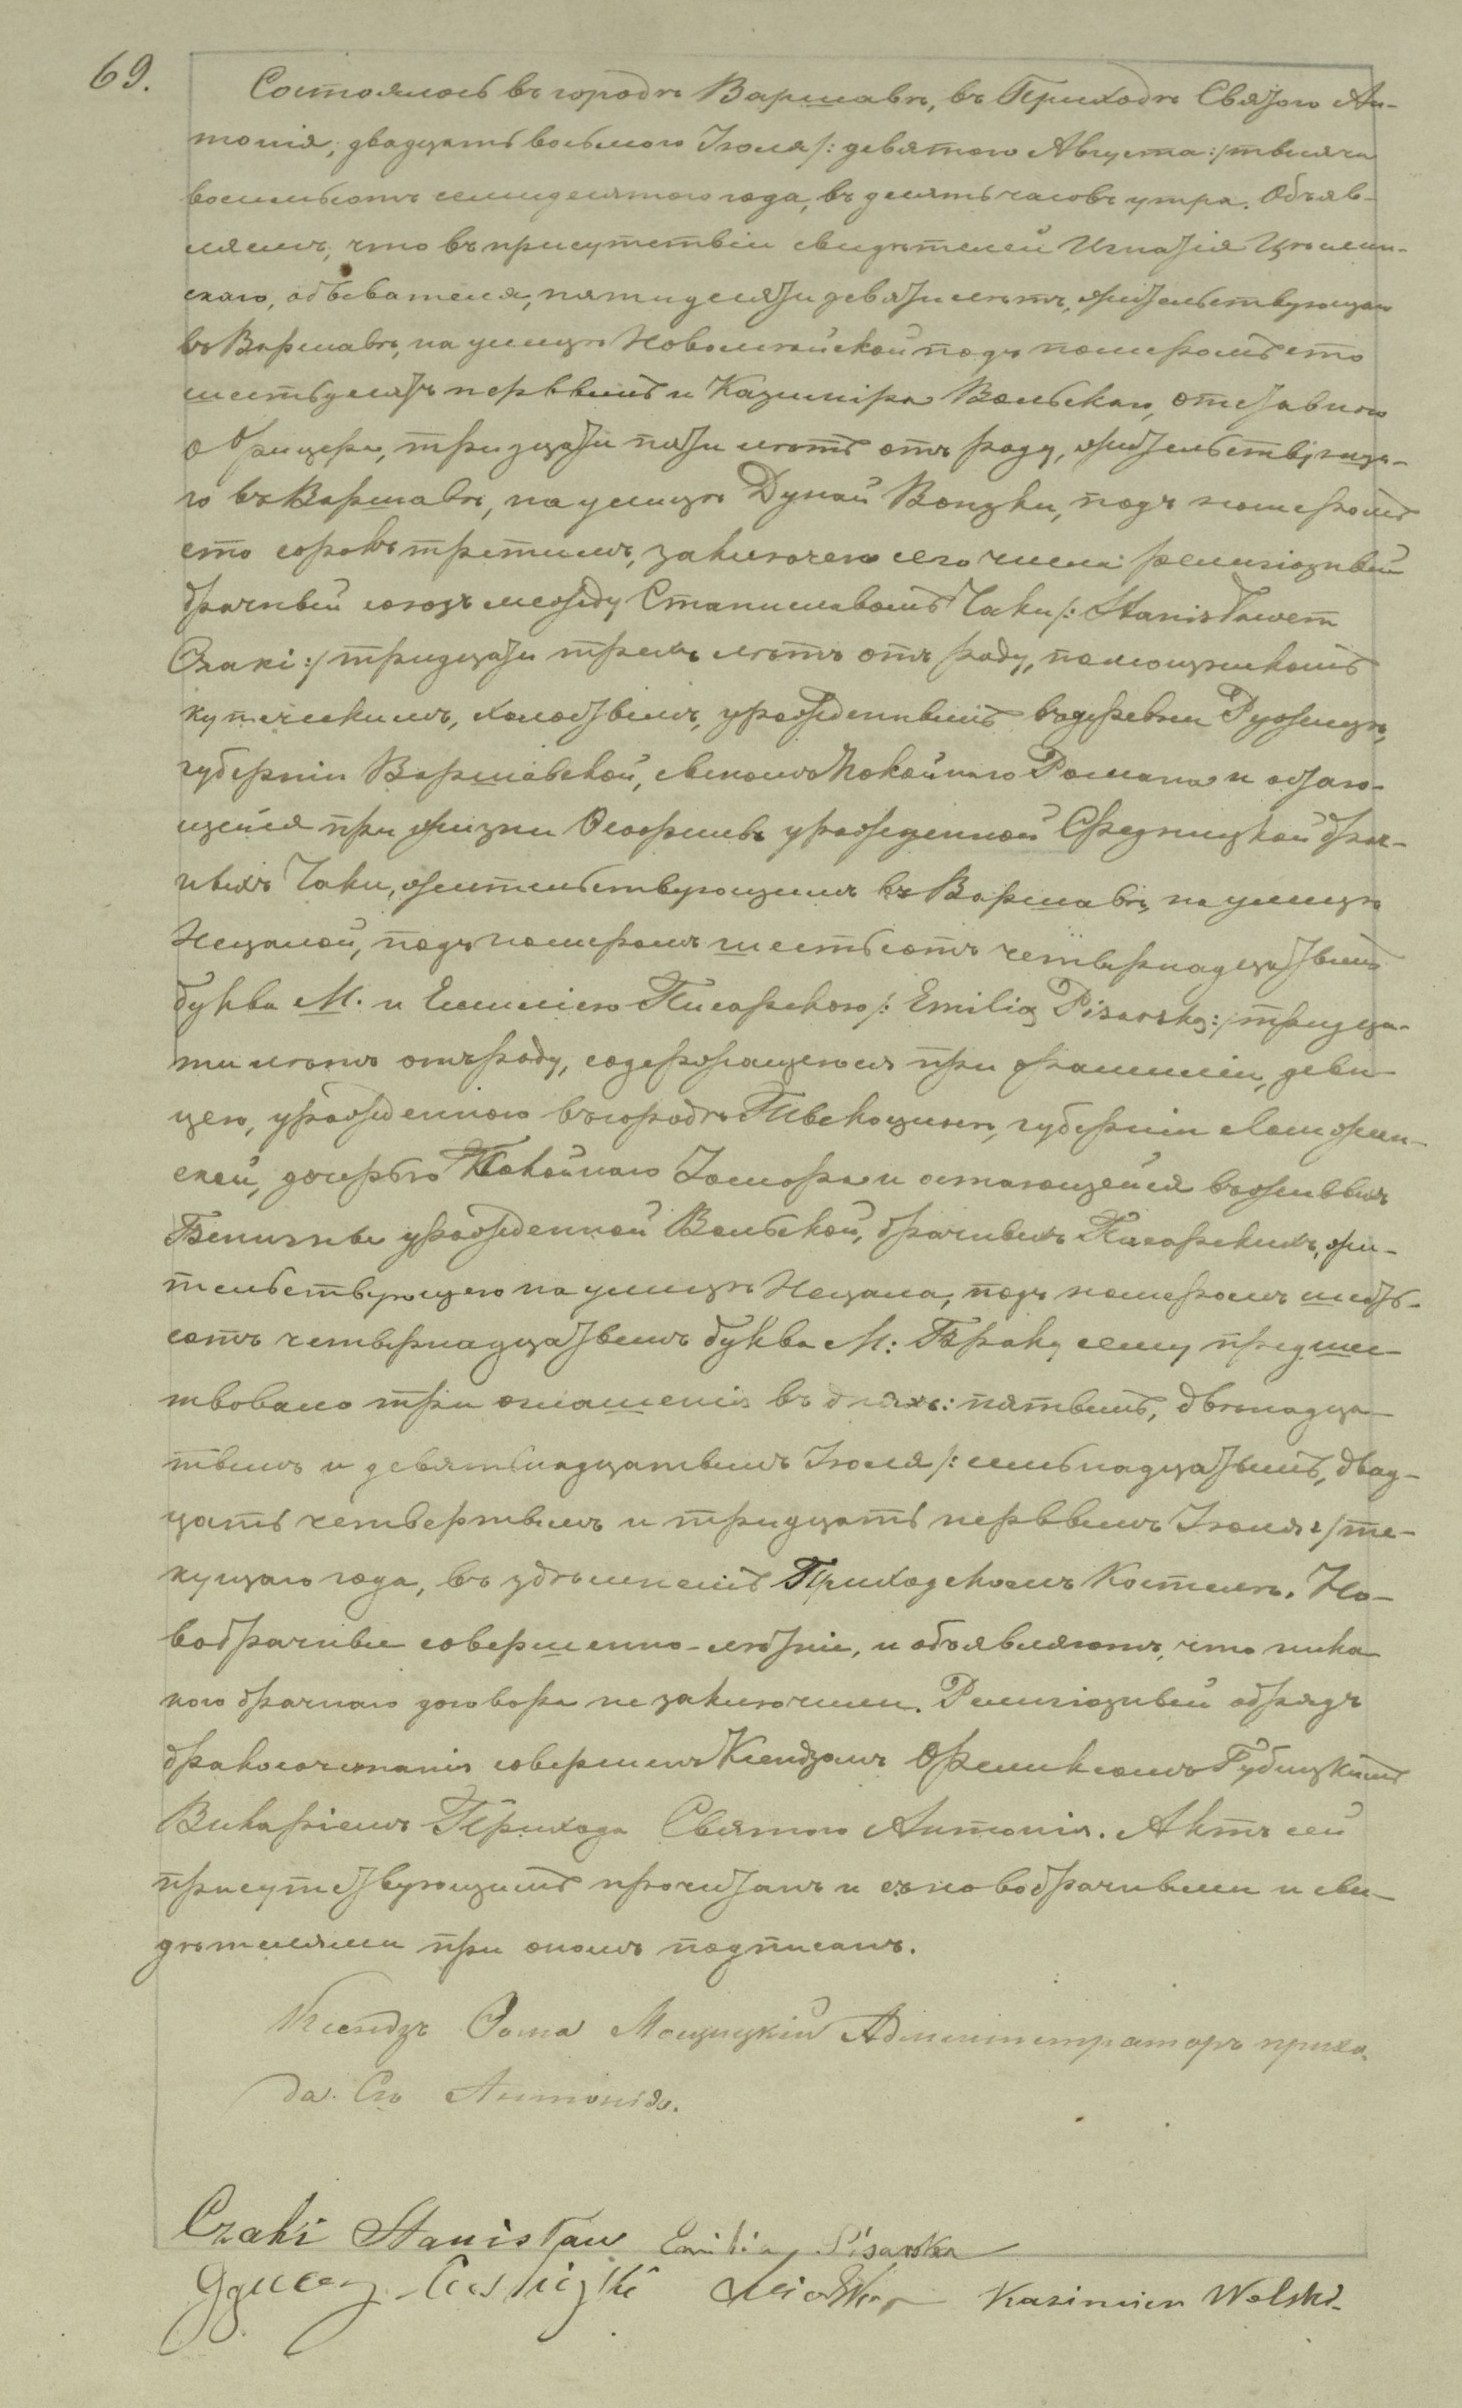 69.
Состоялось въ городѣ Варшавѣ, въ Приходѣ Святого Ан-
тонія, двадцать восьмого Іюля /: девятого Августа :/ тысяча
восемьсотъ семидесятого года, въ десять часовъ утра. Объяв-
ляемъ, что въ присутствіи свидѣтелей Игнатія
скаго, обывателя, пятидесяти девяти лѣтъ, жительствующаго
въ Варшавѣ, на улицѣ Новолипской подъ номеромъ сто
шестьдесятъ первымъ и Казиміра Вольскаго, отставного
офицера, тридцати пяти лѣтъ отъ роду, жительствующа-
го въ Варшавѣ, на улицѣ Дунай Вонзки, подъ номеромъ
сто сорокъ третимъ, заключено сего числа религіозный
брачный союзъ между Станиславомъ Чаки /: Stanisławem
Czaki :/ тридцати трехъ лѣтъ отъ роду, помощникомъ
купеческимъ, холостымъ, урожденнымъ въ деревни Ружицѣ,
губерніи Варшавской, сыномъ Покойнаго Романа и остаю-
щейся при жизни Теофилы урожденной Средницкой брач-
ныхъ Чаки, жительствующимъ въ Варшавѣ, на улицѣ
Нецалой, подъ номеромъ шестьсотъ четырнадцатымъ
буква М. и Емиліею Писарскою /: Emilią Pisarską :/ тридца-
ти лѣтъ отъ роду, содержащеюся при фамиліи, деви-
цею, урожденною въ городѣ Тыкоцинѣ, губерніи Ломжин-
ской, дочерью Покойнаго Іосифа и остающейся въ живыхъ
Бенигны урожденной Вольской, брачныхъ Писарскихъ, жи-
тельствующею на улицѣ Нецала, подъ номеромъ шесть-
сотъ четырнадцатымъ буква М: Браку сему предшес-
твовало три оглашенія въ дняхъ: пятымъ, двѣнадца-
тымъ и девятьнадцатымъ Іюля /: семьнадцатымъ, двад-
цать четвертымъ и тридцать первымъ Іюля :/ те-
кущаго года, въ здѣшнемъ Приходскомъ Костелѣ. Но-
вобрачные совершенно-лѣтніе, и объявляютъ, что ника
кого брачнаго договора не заключили. Религіозный обрядъ
бракосочетанія совершенъ Ксендзомъ Феликсомъ Губицкимъ
Викаріемъ Прихода Святого Антонія. Актъ сей
присутствующимъ прочитанъ и съ новобрачными и сви-
дѣтелями при ономъ подписанъ.
Ксендзъ Ѳома Мощицкій Администраторъ прихо-
да Сго Антонія.
Czaki Stanisław Emilia Pisarska
Kazimierz Wolski